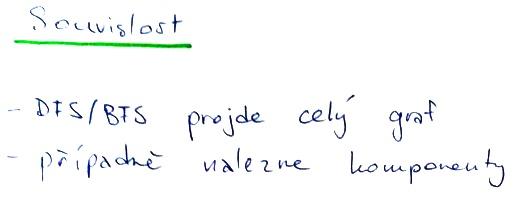 Souvislost
- DFS/BFS projde celý graf
- případně nalezne komponenty